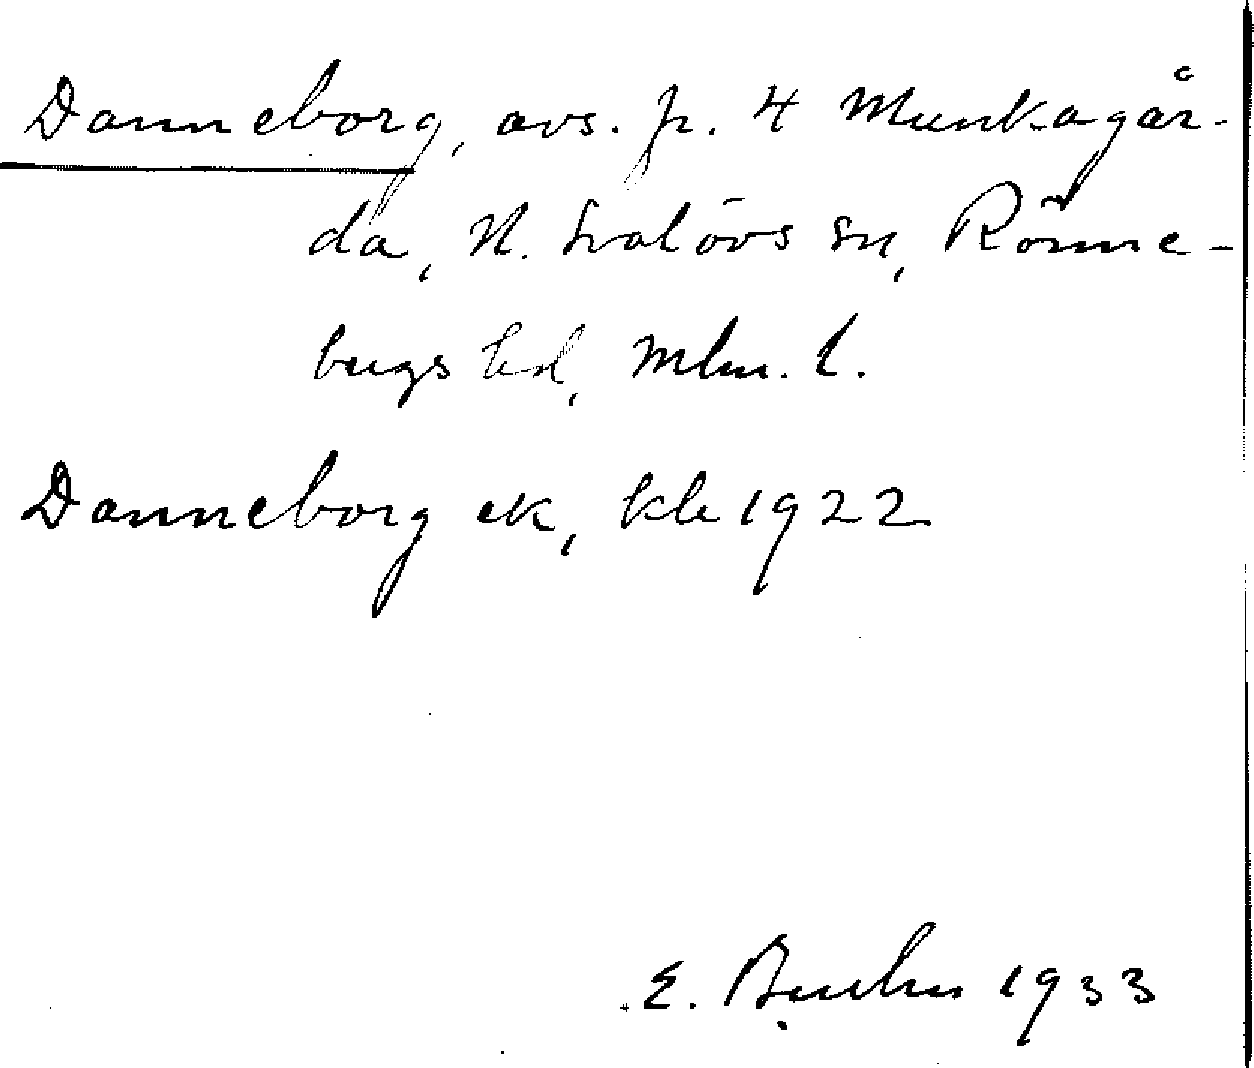 Danneborg, avs. fr. 4 Munkagår-
da, N. Svalövs sn, Rönne-
bergs hd, Mlm. l.
Danneborg ek, kb 1922
E. 1933